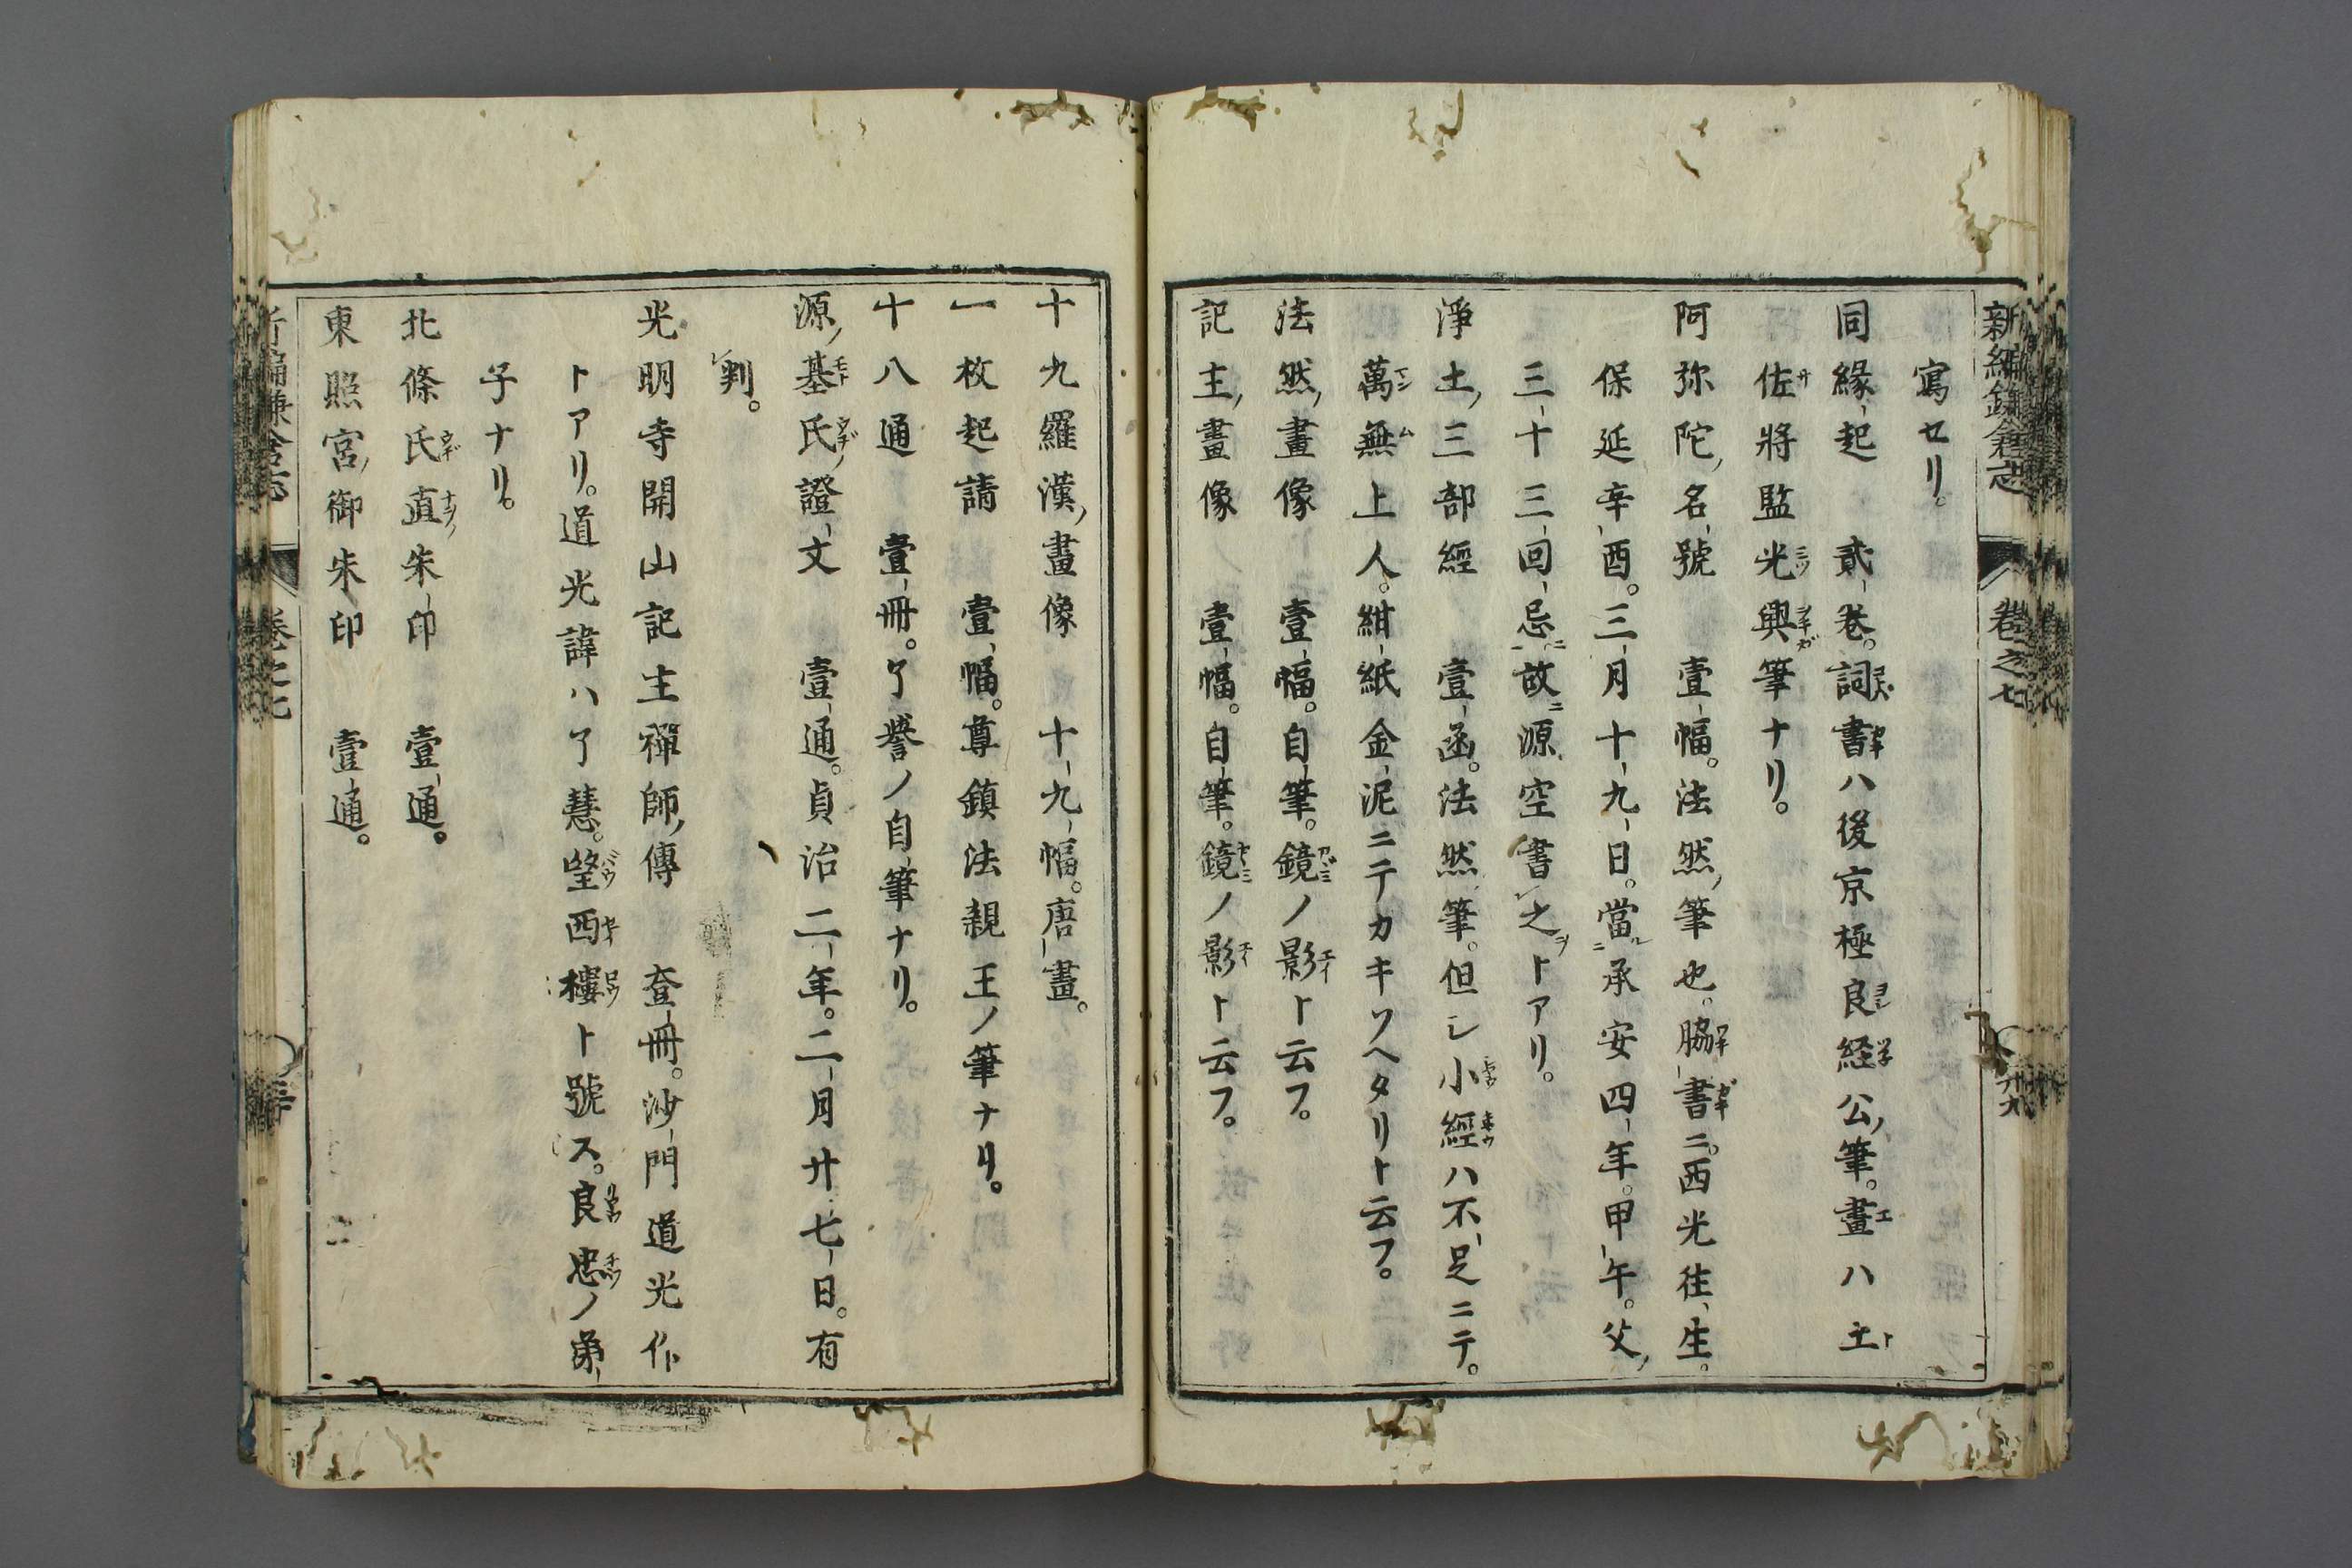 新編鎌倉志 卷之七 廿九
寫セリ。
同緣起 貳卷。詞書ハ後京極良経公ノ筆。畫ハ土
佐將監光興筆ナリ。
阿弥陀ノ名號 壹幅。法然ノ筆也。脇書ニ。西光往生。
保延辛酉。三月十九日。當ニル承安四年。甲午。父ノ
三十三回忌ニ故ニ源空書之ヲトアリ。
淨土ノ三部經 壹函。法然筆。但シ小經ハ不足ニテ。
萬無上人。紺紙金泥ニテカキソヘタリト云フ。
法然ノ畫像 壹幅。自筆。鏡ノ影ト云フ。
記主ノ畫像 壹幅。自筆。鏡ノ影ト云フ。
十九羅漢ノ畫像 十九幅。唐畫。
一枚起請 壹幅。尊鎮法親王ノ筆ナリ。
十八通 壹冊。了譽ノ自筆ナリ。
源ノ基氏ノ證文 壹通。貞治二年。二月廿七日。有
判。
光明寺開山記主禪師ノ傳 壹冊。沙門道光作
トアリ。道光諱ハ了慧。望西樓ト號ス。良忠ノ弟
子ナリ。
北條氏直ノ朱印 壹通。
東照宮ノ御朱印 壹通。
卷之七 三十